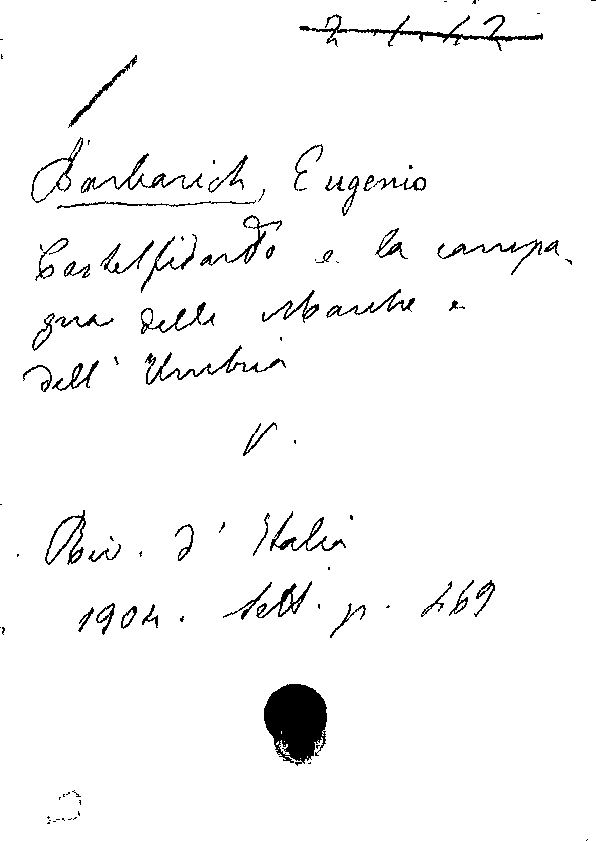 2.1.42
Barbarich, Eugenio
Castelfidardo e la campa-
gna delle Marche e
dell' Umbria
V.
Riv. d' Italia
1904. Sett. p. 469